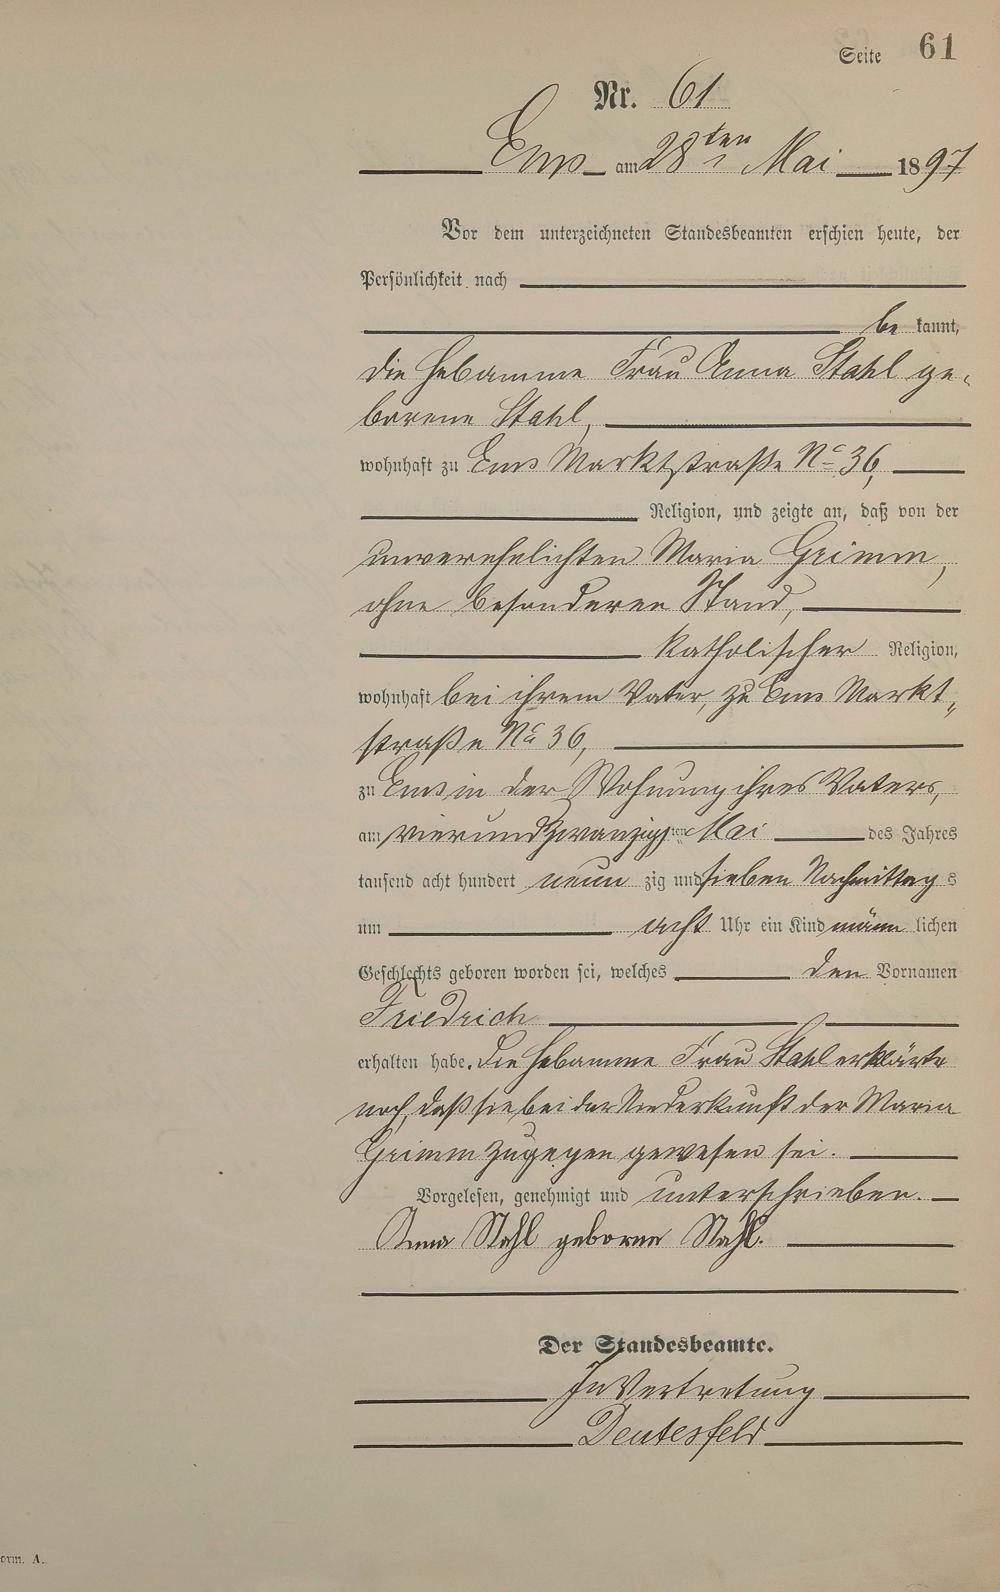 Seite 61
Nr. 61
Ems am 28ten Mai 1897
Vor dem unterzeichneten Standesbeamten erschien heute, der
Persönlichkeit nach
be kannt,
die Hebamme Frau Anna Stahl ge-
borene Stahl,
wohnhaft zu Ems Marktstraße No 36,
Religion, und zeigte an, daß von der
unverehelichten Maria Grimm,
ohne besonderen Stand,
katholischer Religion,
wohnhaft bei ihrem Vater, zu Ems Markt„
straße No 36,
zu Ems in der Wohnung ihres Vaters,
am vierundzwanzigsten Mai des Jahres
tausend acht hundert neun zig und sieben Nachmittag s
um acht Uhr ein Kind männ lichen
Geschlechts geboren worden sei, welches den Vornamen
Friedrich
erhalten habe. Die Hebamme Frau Stahl erklärte
noch, daß sie bei der Niederkunft der Maria
Grimm zugegen gewesen sei.
Vorgelesen, genehmigt und unterschrieben.
Anna Stahl geborne Stahl.
Der Standesbeamte.
In Vertretung
Deutesfeld
orm. A.